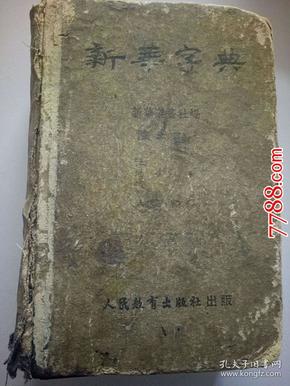 新華字典
新華辞書社編
人民教育出版社出版
7788.com
孔夫子旧书网